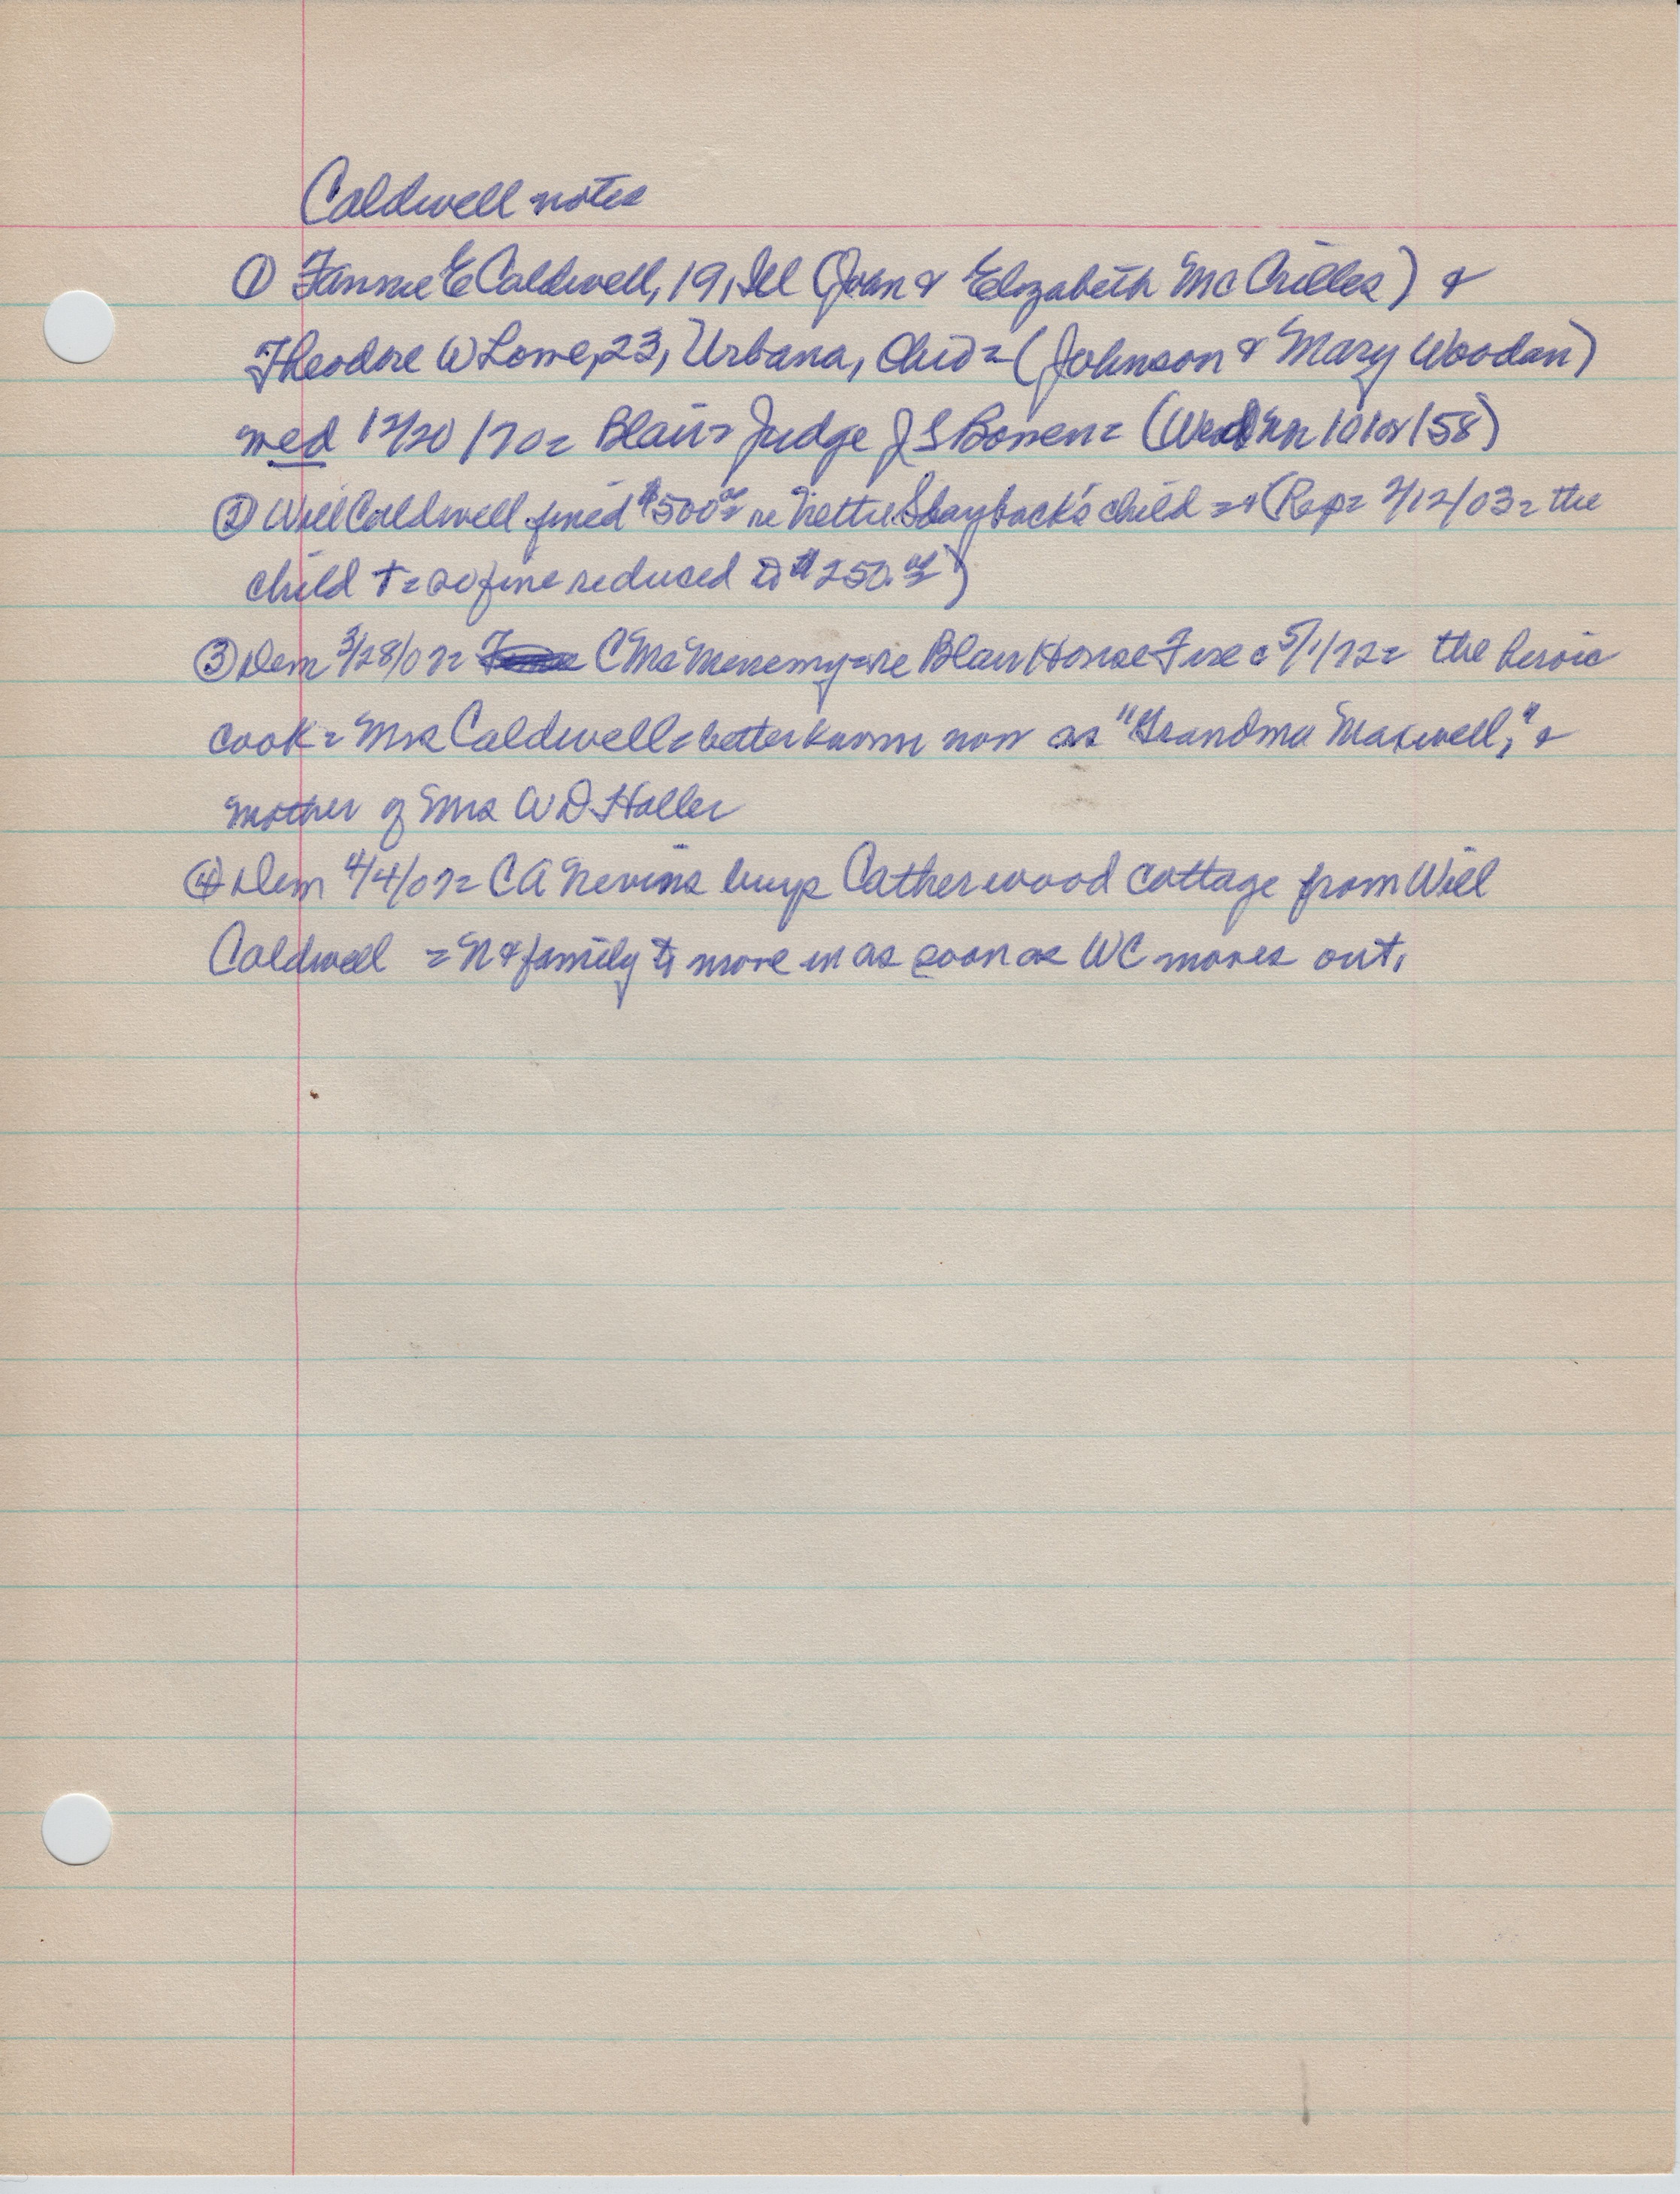 Caldwell notes
① Fannie E Caldwell, 19, Ill (John & Elizabeth McCrilles) &
Theodore W Lowe, 23, Urbana, Ohio = (Johnson & Mary Woodan)
med 12/20/70 = Blair = Judge J S Bowen = (10/ /58)
② Will Caldwell fined $500.00 re Nettie Slayback's child = + (Rep = 2/12/03 = the
child † = so fine reduced to $250.00)
③ Dem 3/28/07 = C McMenemy = re Blair House Fire c 5/1/72 = the heroic
cook = Mrs Caldwell = better known now as "Grandma Maxwell," &
mother of Mrs W D Haller
④ Dem 4/4/07 = C A Nevins buys Catherwood cottage from Will
Caldwell = N & family to move in as soon as WC moves out.